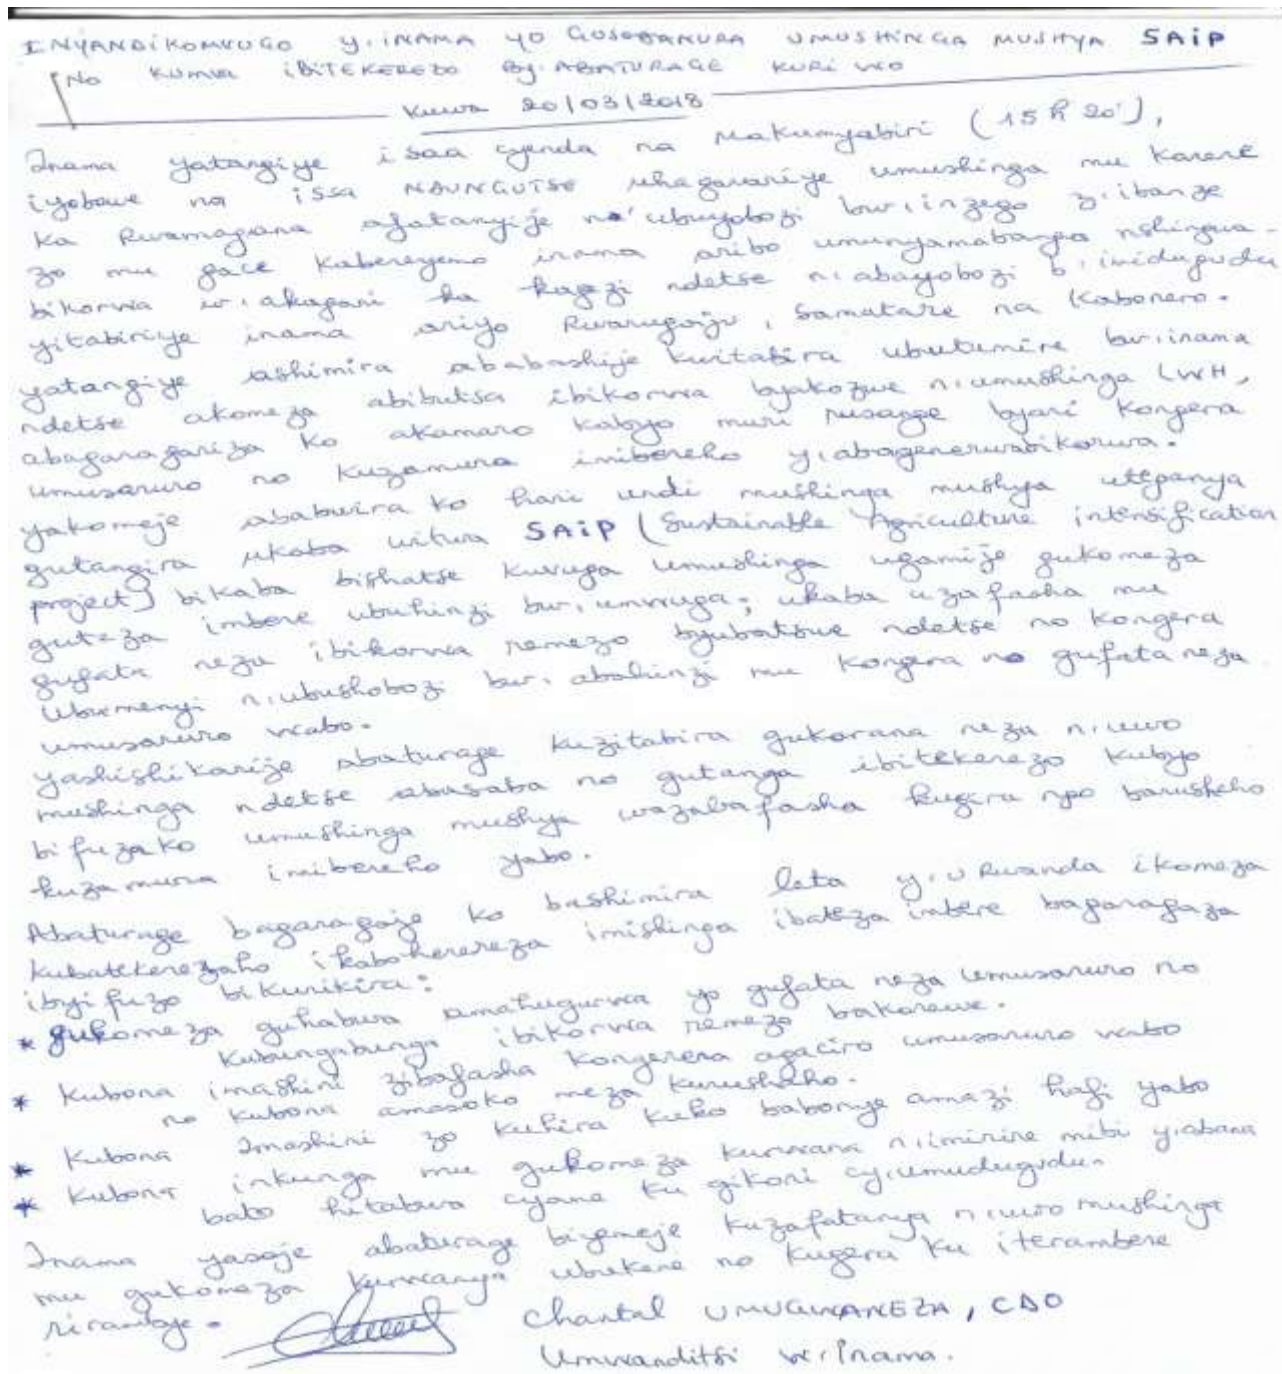 INYANDIKOMVUGO Y'INAMA YO GUSOBANURA UMUSHINGA MUSHYA SAiP
NO KUMVA IBITEKEREZO BY'ABATURAGE KURI WO
Kuwa 20/03/2018
Inama yatangiye i saa cyenda na makumyabiri (15 h 20'),
iyobowe na issa NDUNGUTSE uhagarariye umushinga mu karere
ka Rwamagana afatanyije n'ubuyobozi bw'inzego z'ibanze
zo mu gace kabereyemo inama aribo umunyamabanga nshingwa-
bikorwa w'akagari ka kagezi ndetse n'abayobozi b'imidugudu
yitabiriye inama ariyo Rwarugaju, Samatare na Kabonero.
yatangiye ashimira ababashije kwitabira ubutumire bw'inama
ndetse akomeza abibutsa ibikorwa byakozwe n'umushinga LWH,
abagaragariza ko akamaro kabyo muri rusange byari kongera
umusaruro no kuzamura imibereho y'abagenerwabikorwa.
yakomeje ababwira ko hari undi mushinga mushya uteganya
gutangira ukaba witwa SAiP (Sustainable Agriculture intensification
project) bikaba bishatse kuvuga umushinga ugamije gukomeza
guteza imbere ubuhinzi bw'umwuga; ukaba uzafasha mu
gufata neza ibikorwa remezo byubatswe ndetse no kongera
Ubumenyi n'ubushobozi bw'abahinzi mu kongera no gufata neza
umusaruro wabo.
yashishikarije abaturage kuzitabira gukorana neza n'uwo
mushinga ndetse abasaba no gutanga ibitekerezo kubyo
bifuzako umushinga mushya wazabafasha kugira ngo barusheho
kuzamura imibereho yabo.
Abaturage bagaragaje ko bashimira leta y'u Rwanda ikomeza
kubatekerezaho ikabohererereza imishinga ibateza imbere bagaragaza
ibyifuzo bikurikira:
* gukomeza guhabwa amahugurwa yo gufata neza umusaruro no
kubungabunga ibikorwa remezo bakorewe.
* Kubona imashini zibafasha kongerera agaciro umusaruro wabo
no kubona amasoko meza kurushaho.
* Kubona Imashini zo kuhira kuko babonye amazi hafi yabo
* Kubona inkunga mu gukomeza kurwana n'imirire mibi y'abana
bato hitabwa cyane ku gikoni cy'umudugudu.
Inama yasoje abaturage biyemeje kuzafatanya n'uwo mushinga
mu gukomeza kurwanya ubukene no kugera ku iterambere
rirambye.
Chantal UMUGWANEZA, CDO
Umwanditsi w'Inama.